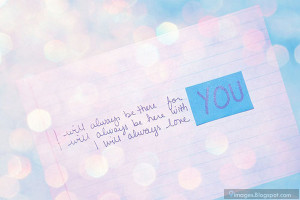 I will always be there for
will always be here with
I will always love
YOU
images.blogspot.com